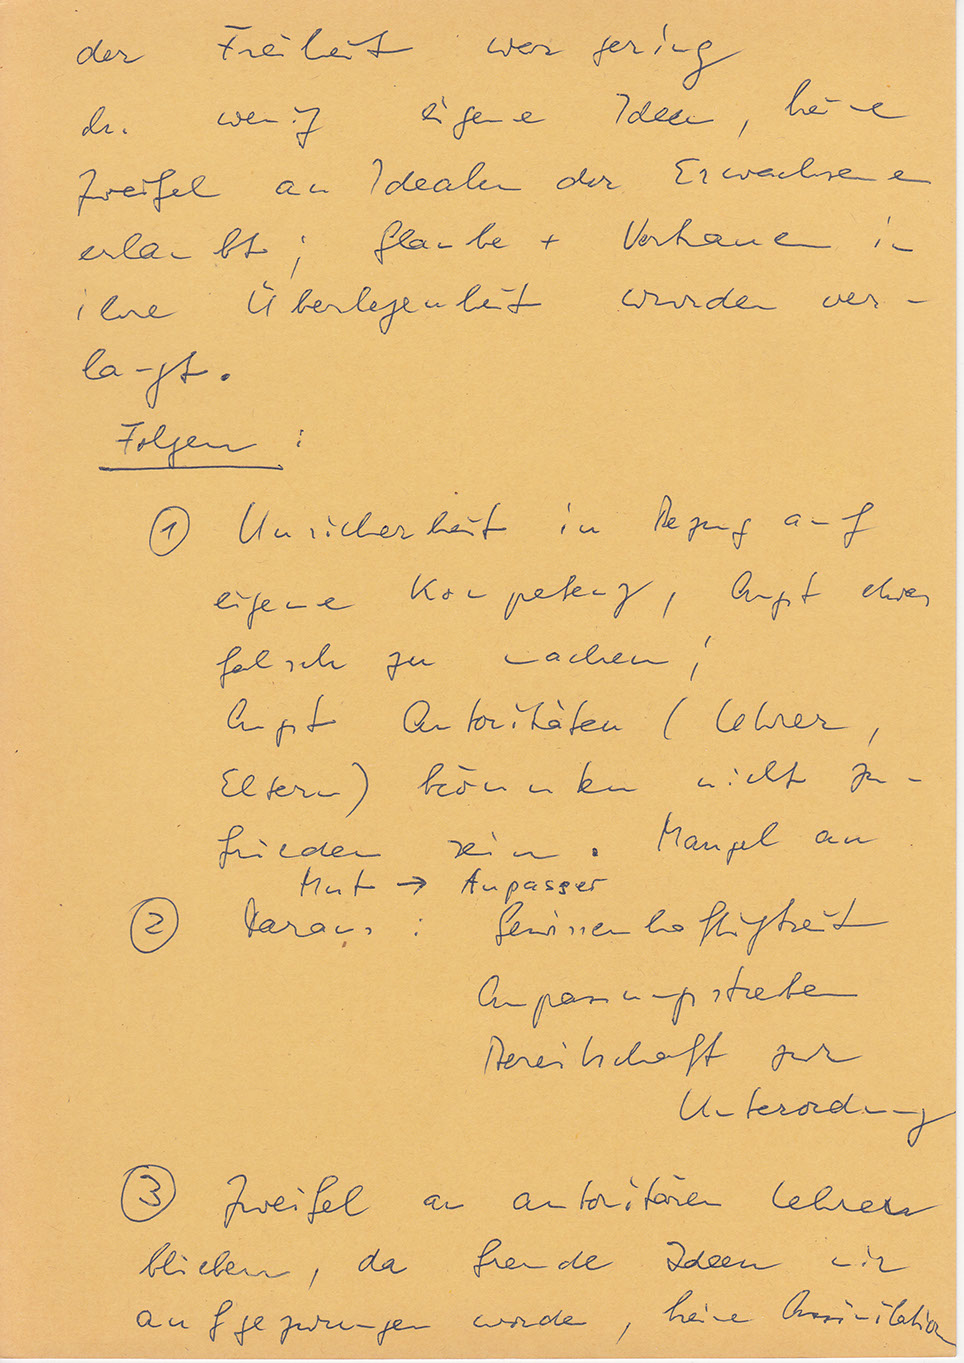 der Freiheit war gering
d.h. wenig eigene Ideen, keine
Zweifel an Idealen der Erwachsenen
erlaubt; Glaube + Vertrauen in
ihre Überlegenheit wurden ver-
langt.
Folgen :
① Unsicherheit in Bezug auf
eigene Kompetenz, Angst etwas
falsch zu machen;
Angst Autoritäten (Lehrer,
Eltern) könnten nicht zu-
frieden sein. Mangel an
Mut → Anpasser
② Daraus : Gewissenhaftigkeit
Anpassungsstreben
Bereitschaft zur
Unterordnung
③ Zweifel an autoritären Lehrern
blieben, da fremde Ideen mir
aufgezwungen wurden, keine Assimilation